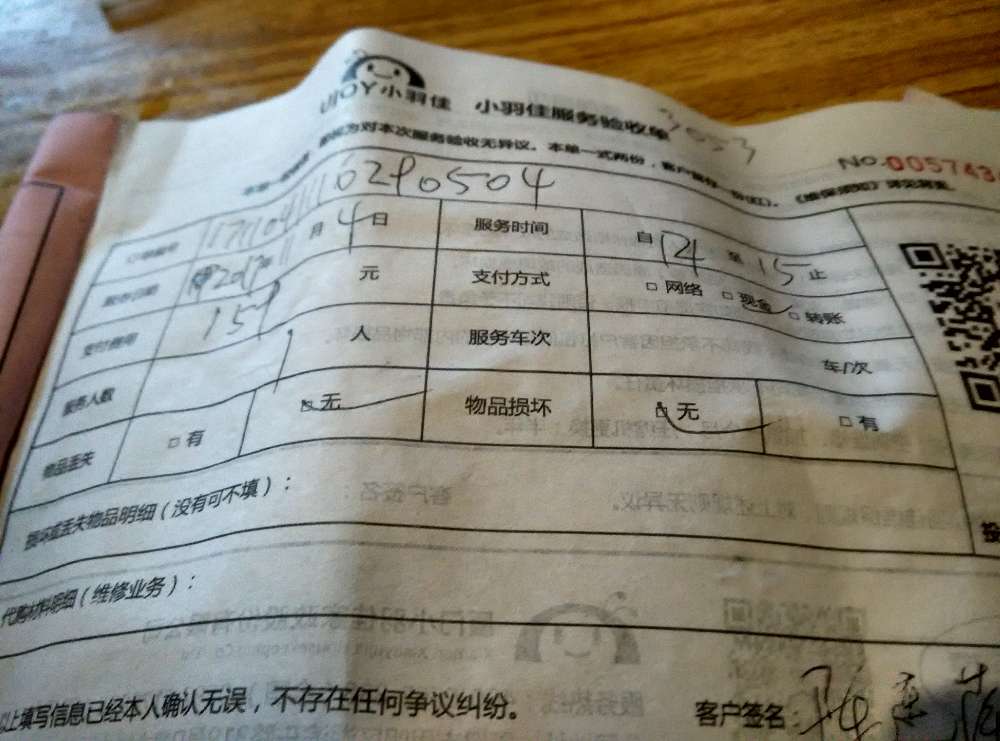 UJOY小羽佳 小羽佳服务验收单
对本次服务验收无异议。本单一式两份，客户暂存一份(红)。《维保须知》详见背面。
No.0057434
订单编号 17110411110290504
服务日期 2017年11月4日 服务时间 自14至15止
支付费用 159元 支付方式 □网络 □现金 □转账
服务人数 1人 服务车次 车/次
物品丢失 □有 □无 物品损坏 □无 □有
损坏或丢失物品明细（没有可不填）：
代购材料明细（维修业务）：
以上填写信息已经本人确认无误，不存在任何争议纠纷。
客户签名：